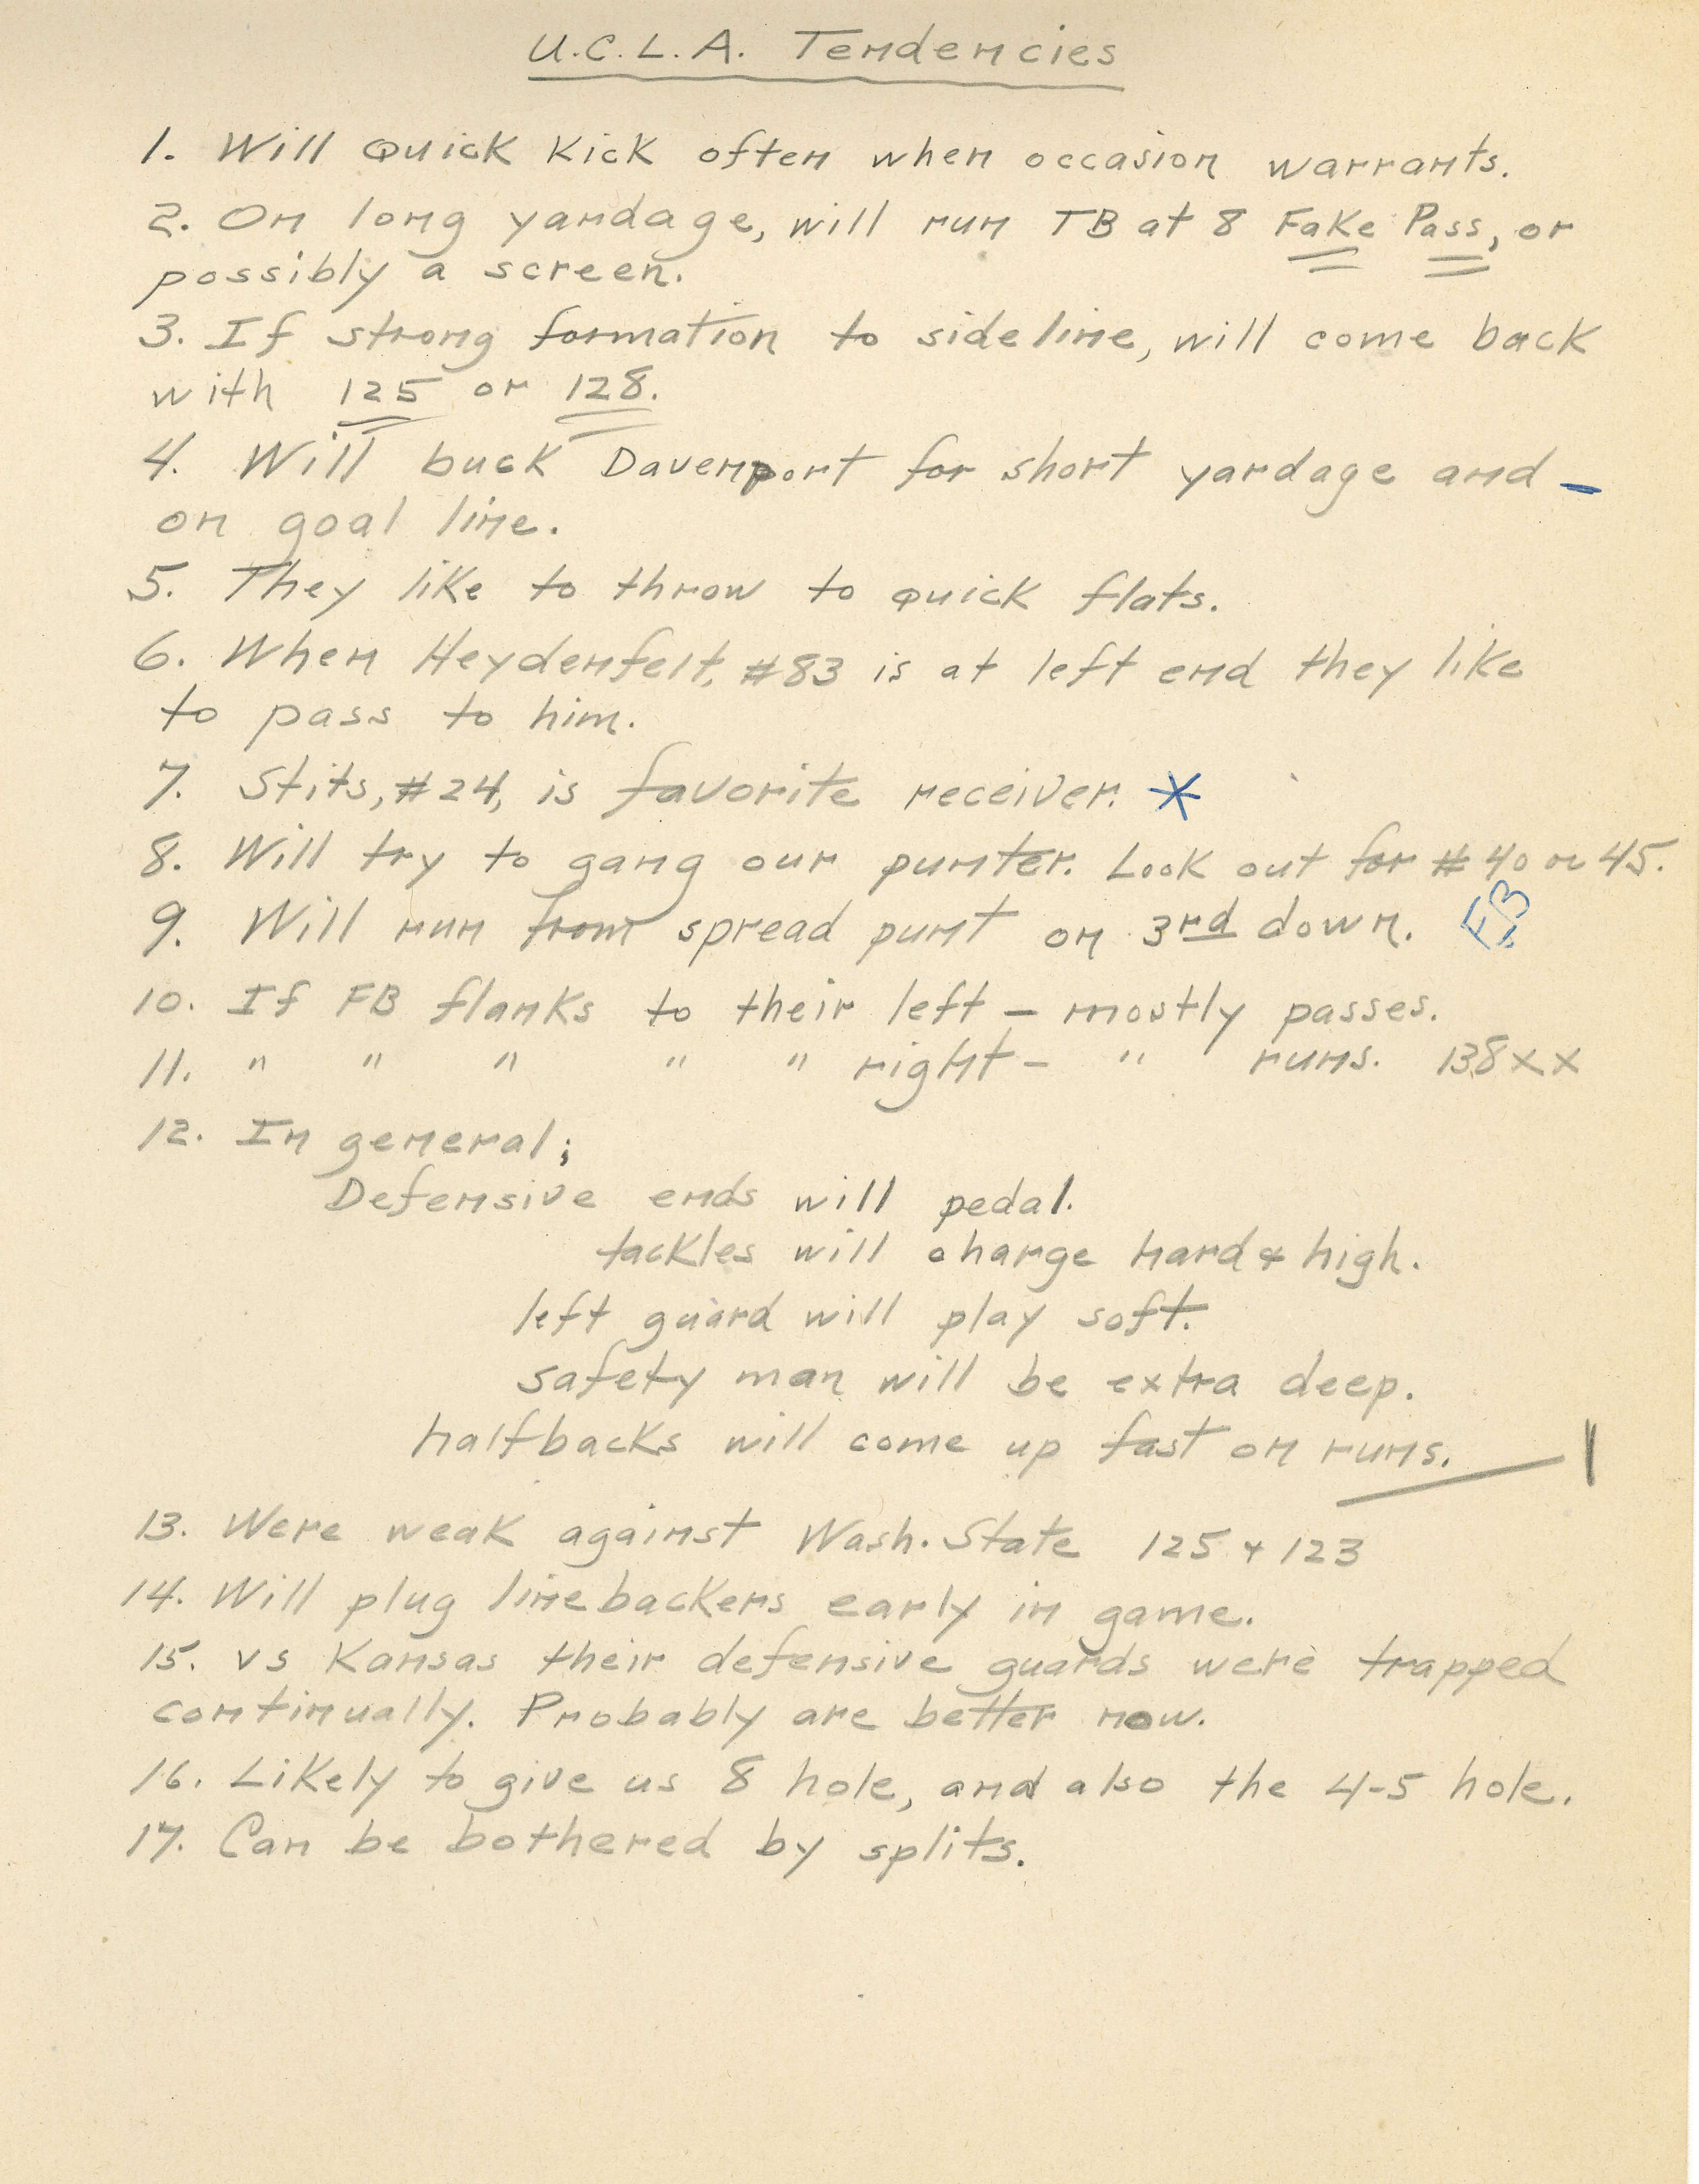 U.C.L.A. Tendencies
1. Will Quick Kick often when occasion warrants.
2. On long yardage, will run TB at 8 Fake Pass, or
possibly a screen.
3. If strong formation to sideline, will come back
with 125 or 128.
4. Will buck Davenport for short yardage and -
on goal line.
5. They like to throw to quick flats.
6. When Heydenfelt, #83 is at left end they like
to pass to him.
7. Stits, #24, is favorite receiver. *
8. Will try to gang our punter. Look out for #40 or 45.
9. Will run from spread punt on 3rd down. FB
10. If FB flanks to their left - mostly passes.
11. " " " " " right - " runs. 138XX
12. In general;
Defensive ends will pedal.
tackles will charge hard & high.
left guard will play soft.
safety man will be extra deep.
halfbacks will come up fast on runs.
13. Were weak against Wash. State 125 & 123
14. Will plug linebackers early in game.
15. vs Kansas their defensive guards were trapped
continually. Probably are better now.
16. Likely to give us 8 hole, and also the 4-5 hole.
17. Can be bothered by splits.